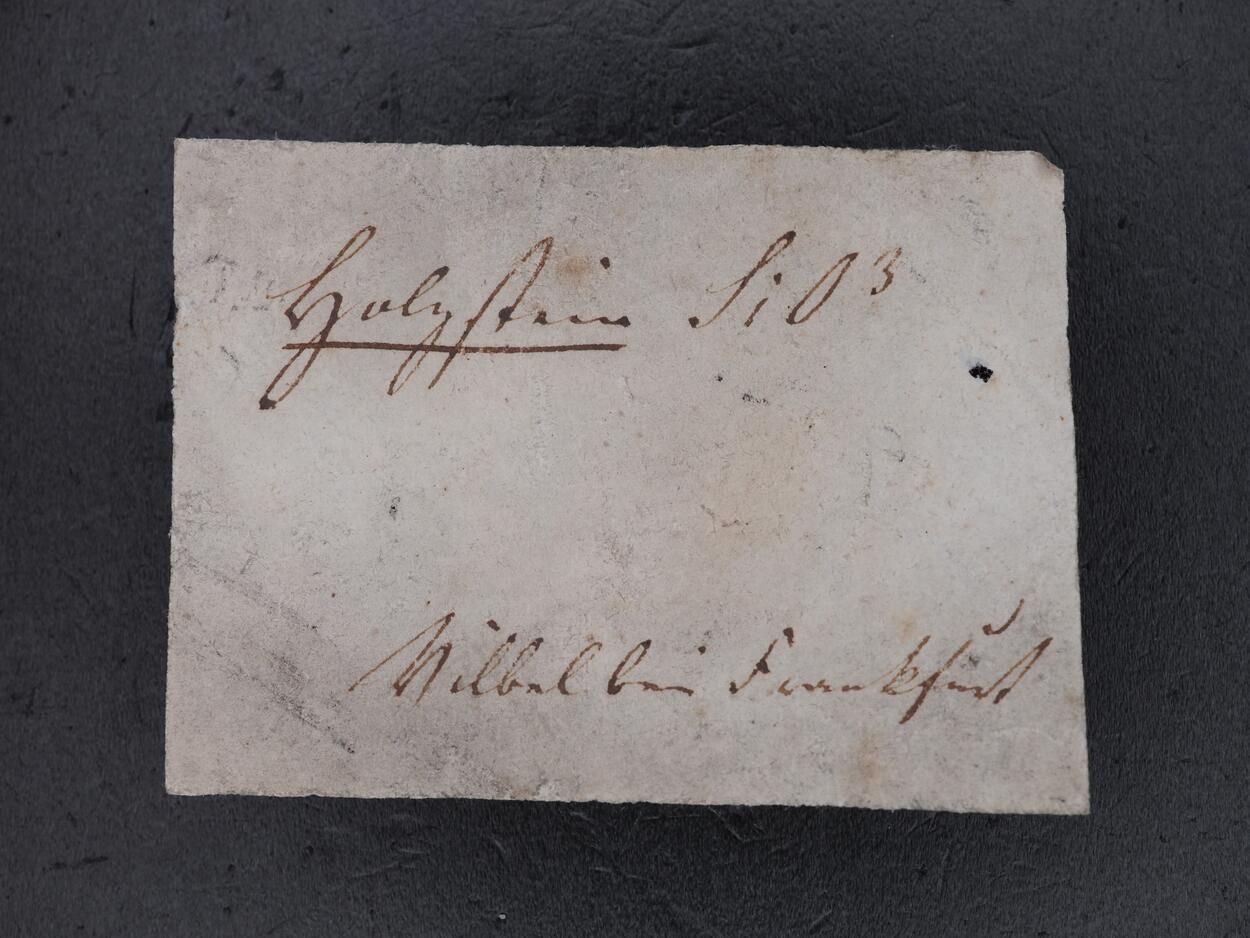 Holzstein SiO³
Vilbel bei Frankfurt